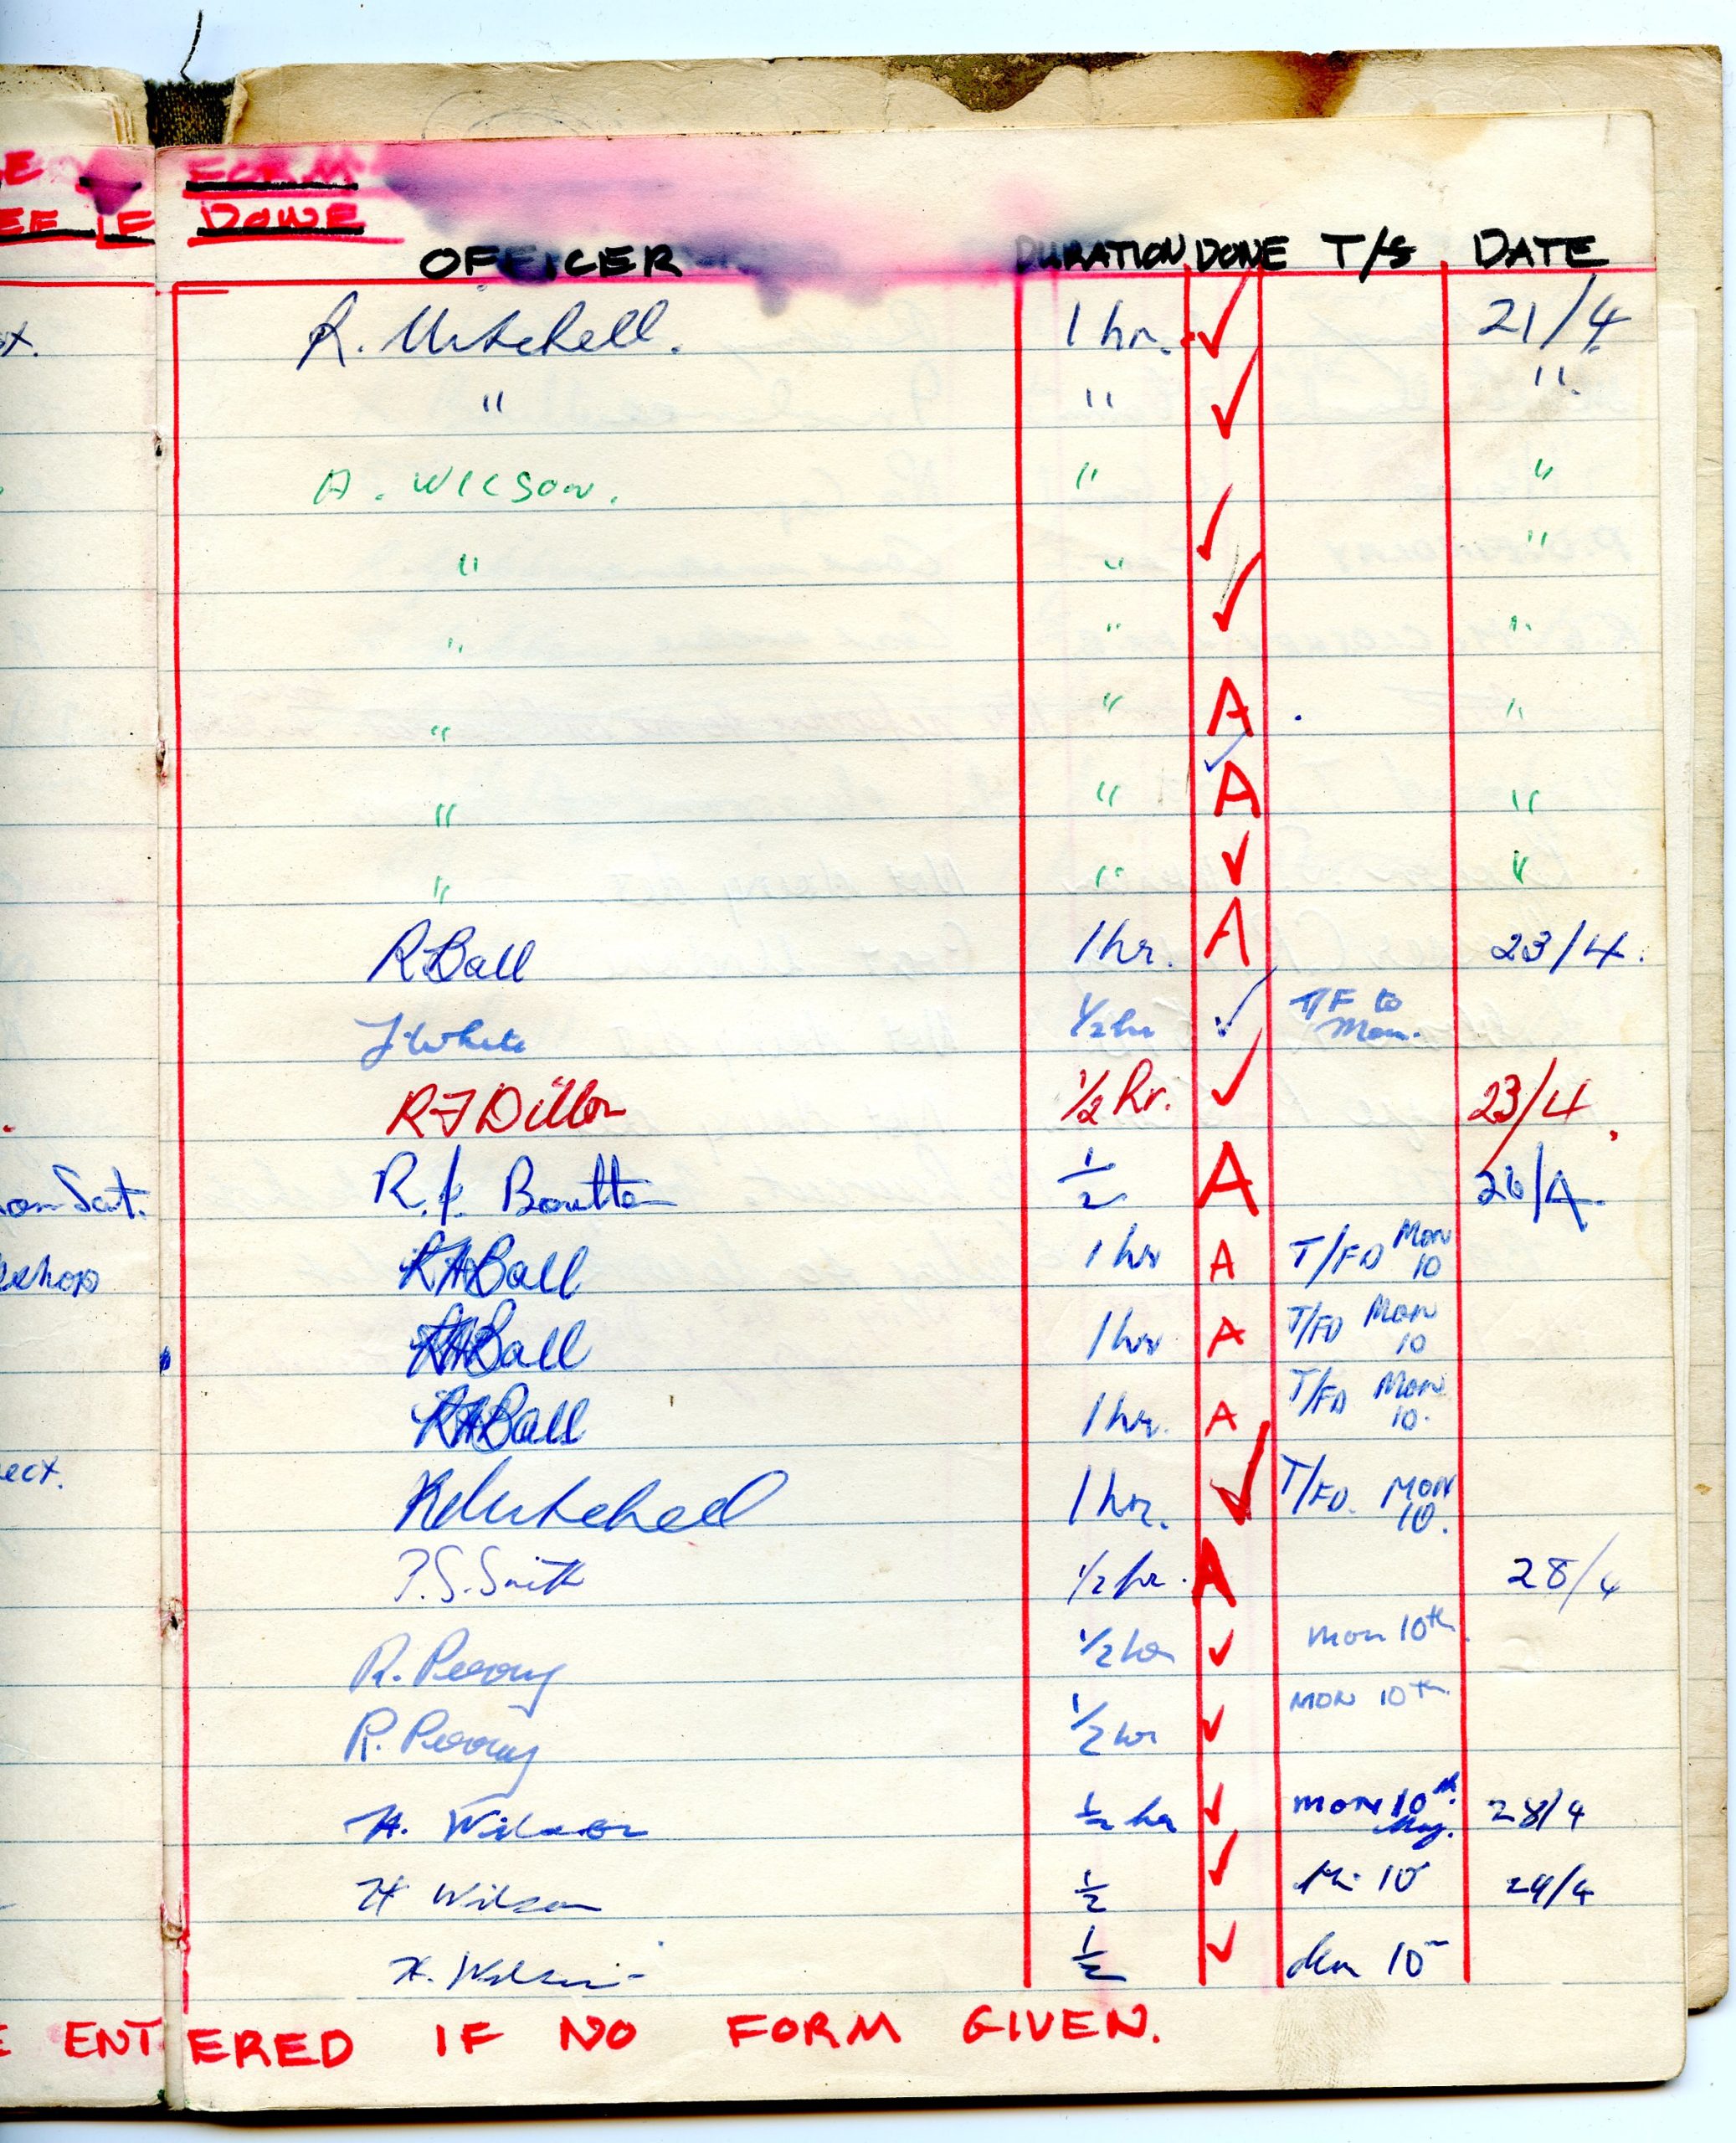 FORM
DONE
OFFICER DURATION DONE T/S DATE
R. Mitchell. 1 hr. ✓ 21/4
" " ✓ "
A. WILSON. " ✓ "
" " ✓ "
" " "
" " A "
" " A "
" " ✓ "
R Ball 1 hr. A 23/4.
J White 1/2 hr ✓ T/F to Mon.
R J Dillon 1/2 hr. ✓ 23/4.
on Sat. R. J. Boutte 1/2 A 26/4.
kshop R H Ball 1 hr A T/FD Mon 10
R H Ball 1 hr A T/FD Mon 10
R H Ball 1 hr. A T/FD Mon 10.
ect. R Mitchell 1 hr. ✓ T/FD. MON 10.
P.S. Smith 1/2 hr. A 28/4
R. Perry 1/2 hr ✓ Mon 10th.
R. Perry 1/2 hr ✓ MON 10th
H. Wilson 1/2 hr ✓ MON 10th. May. 28/4
H Wilson 1/2 ✓ 10 29/4
H. Wilson 1/2 ✓ Mon 10
E ENTERED IF NO FORM GIVEN.